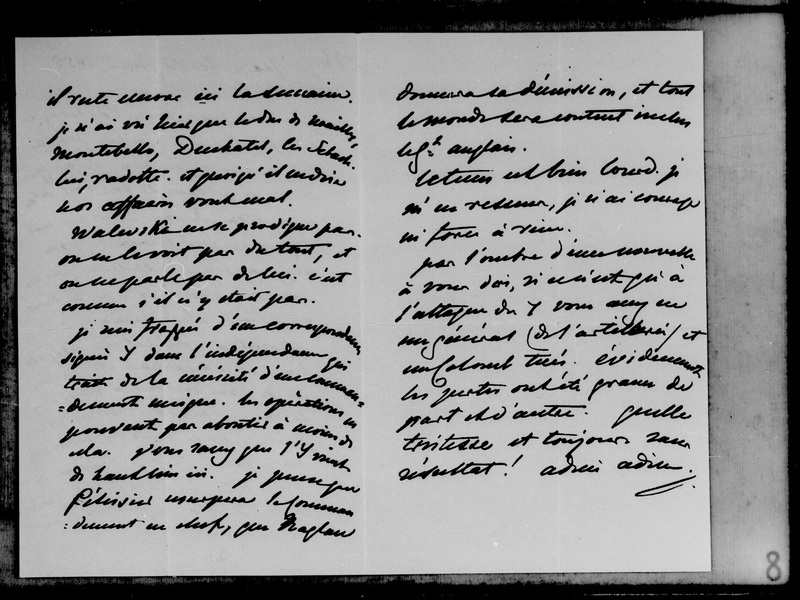 il reste encore ici la semaine.
je n'ai vu hier que le duc de Noailles,
Montebello, Duchatel, les
radotte. et
nos affaires vont mal.
Walewski ne se prodigue pas.
on ne le voit pas du tout, et
on ne parle pas de lui. c'est
comme s'il n'y était pas.
je suis frappée d'une correspondance
signée Y dans l'indépendance qui
traite de la nécessité d'un comman-
=dement unique. les opérations ne
peuvent pas aboutir à moins de
cela. vous savez que l'Y vient
de haut lieu ici. je pense que
Pélissier usurpera le comman
=dement en chef, que Raglan
donnera sa démission, et tout
le monde sera content inclus
le gt anglais.
le tems est bien lourd. je
m'en ressens, je n'ai courage
ni force à rien.
pas l'ombre d'une nouvelle
à vous dire, si ce n'est qu'à
l'attaque du 7 nous avons eu
un général (de l'artillerie) et
un Colonel tués. évidemment
les pertes ont été grandes de
part et d'autre. quelle
tristesse et toujours sans
résultat! adieu adieu.
8